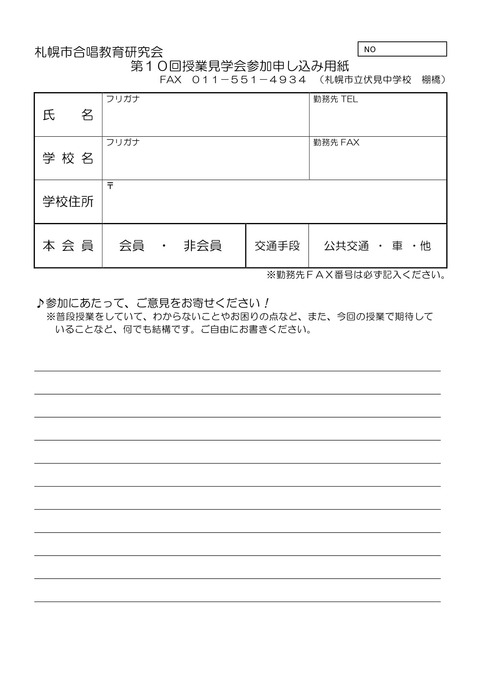 NO
札幌市合唱教育研究会
第１０回授業見学会参加申し込み用紙
FAX ０１１－５５１－４９３４ （札幌市立伏見中学校 棚橋）
フリガナ 勤務先 TEL
氏 名
フリガナ 勤務先 FAX
学 校 名
〒
学校住所
本 会 員 会員 ・ 非会員 交通手段 公共交通 ・ 車 ・他
※勤務先ＦＡＸ番号は必ず記入ください。
♪参加にあたって、ご意見をお寄せください！
※普段授業をしていて、わからないことやお困りの点など、また、今回の授業で期待して
いることなど、何でも結構です。ご自由にお書きください。